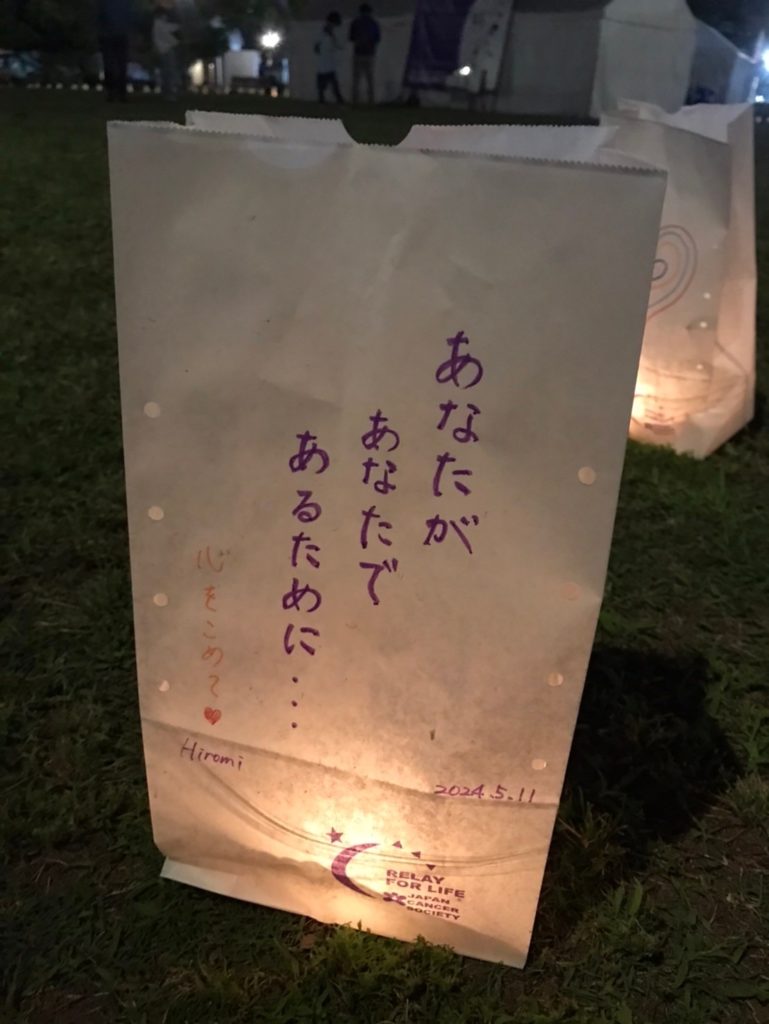 あなたが
あなたで
あるために...
心をこめて♥
Hiromi
2024.5.11
RELAY
FOR LIFE
JAPAN
CANCER
SOCIETY